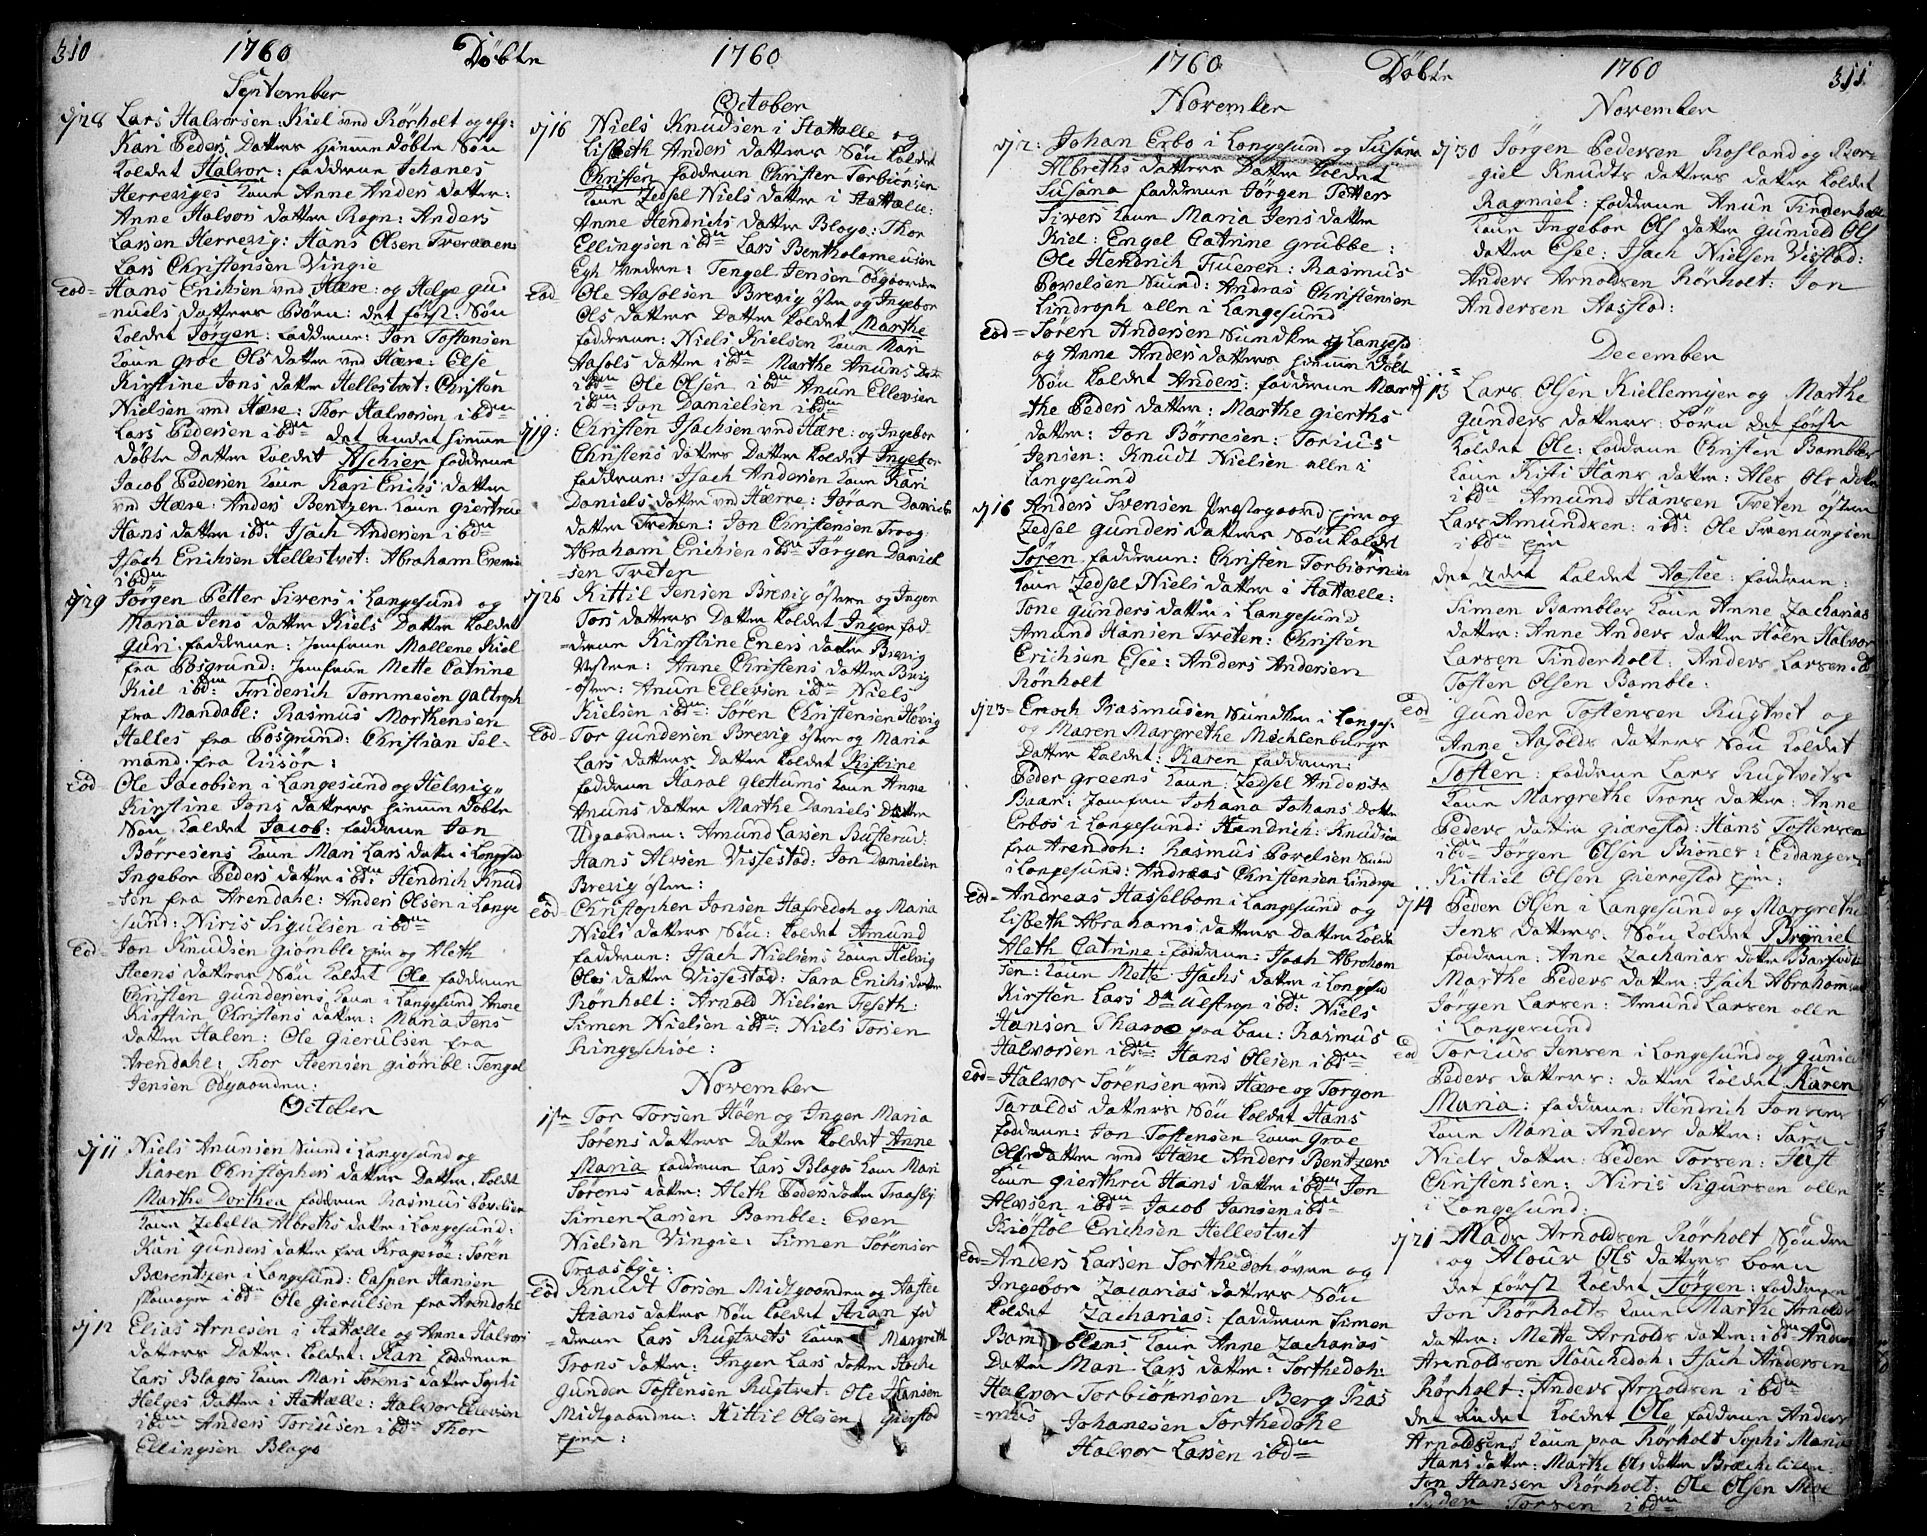 310 1760 Döbte 1760
September
d/28 Lars Halvorsen Kiel ved Rörholt og
Kari Peders Datters hiemme döbte Sön
Kaldet Halvor: faddrene Johanes
Herreviges Kone Anne Anders datter:
Anne Halvors datter Rogn: Anders
Larsen Herrevig: Hans Olsen
Lars Christensen Vingie
Eod= Hans Erichsen ved Hære: og Helge Gu-
=nuels datters Börn: det först: Sön
Kaldet Jörgen: faddrene: Jon Tostensen
Kone Groe Ols datter ved Hære: Else
Kirstine Jons datter Hellestvet: Christen
Nielsen ved Hære: Thor Halvorsen ibdm
Lars Pedersen ibdm det andet hiemme
döbte Datter Kaldet Aschier faddrene
Jacob Pedersen Kone Kari Erichs datter
ved Hære: Anders Bentzen Kone Giertrue
Hans datter ibd: Isach Andersen ibdm
Isach Erichsen Hellestvet: Abraham
ibdm
d/29 Jörgen Petter Sivers i Langesund og
Maria Jens datter Kiels Datter Kaldet
Guri: faddrene: Jomfrue Mallene Kiel
fra Posgrund: Jomfrue Mette Catrine
Kiel ibdm: Friderich Tommesen
fra Mandahl: Rasmus Morthensen
Helles fra Posgrund: Christian Sel-
mand fra Riisör:
Eod= Ole Jacobsen i Langesund og Helvig
Kirstine Jons datters hiemme döbte
Sön Kaldet Jacob: faddrene Jon
Börresens Kone Mari Lars datter i Langesd
Ingebor Peders datter ibdm: Hendrich Knud
=sen fra Arendahl: Anders Olsen i Lange
sund: Niris Sigulsen ibdm
Eod= Jon Knudsen Giömble og Aleth
Steens datters Sön Kaldet Ole faddrene
Christen Gundersens Kone i Langesund Anne
Kirstin Christens datter: Maria Jens
datter Halen: Ole Gierulsen fra
Arendahl: Thor Steensen Giömbl: Tengel
Jensen Ödgaarden:
October
d/11 Niels Anunsen Sund i Langesund og
Karen Christophers datters Datter Kaldt
Marthe Dorthea faddrene Rasmus Povelsen
Kone Zebella Albreths datter i Langesund:
Kari Gunders datter fra Krageröe: Sören
Bærentzen i Langesund: Casper Hansen
ibdm Ole Gierulsen fra Arendahl
d/12 Elias Arnesen i Hatælle og Anne Halvors
datters Datter: Kaldet: Kari faddrene
Lars Blagos Kone Mari Sörens datter Sophi
Helges datter i Hatælle: Halvor Ellevsen
ibdm Anders Toriusen ibdm Thor
Ellingsen Blago
October
d/16 Niels Knudsen i Hattelle og
Lisbeth Anders datters Sön Kaldet
Christen faddrene Christen Torbiörnsen
Kone Zedsel Niels datter i Hattelle:
Anne Hendrichs datter Blago: Thor
Ellingsen ibdm Lars Bentholomeusen
Egh: Tengel Jensen Ödgaarden
Eod Ole Aasolsen Brevig östre og Ingebor
Ols datters Datter Kaldet Marthe
faddrene: Niels Kielsen Kone Mari
Aasols datter ibdm Marthe Anuns Datter
ibdm Ole Olsen ibdm Anun Ellevsen
ibdm: Jon Danielsen ibdm
d/19: Christen Isachsen ved Hære: og Ingebor
Christens datters Datter Kaldet Ingebor
faddrene: Isach Andersen Kone Kari
Daniels datter ved Hærre: Jöran Daniels
datter Treten: Jon Christensen Traag:
Abraham Erichsen ibdm Jörgen Daniel
sen Treten
d/26 Kittil Jensen Brevig östre og Inger
Tors datters Datter Kaldet Inger fad-
=drene Kirstine Eners datter Brevig
Vestre: Anne Christens datter Brevig
östre: Anun Ellevsen ibdm Niels
Kielsen ibdm: Sören Christensen Hövig
Eod= Tor Gundersen Brevig östre og Maria
Lars datters Datter Kaldet Kirstine
faddrene Haral Glettums Kone Anne
Anuns datter Marthe Daniels Datter
Udgaarden: Amund Larsen Busterud:
Hans Alvsen Vissestad: Jon Danielsen
Brevig östre:
Eod= Christopher Jonsen Hafredah og Maria
Niels datters Sön: Kaldet Amund
faddrene: Isach Nielsens Kone Helvig
Oles datter Vissestad: Sara Erichs datter
Rönholt: Arnold Nielsen Feseth:
Simen Nielsen ibdm: Niels Torsen
Ringeschiöe:
November
1ste Tor Torsen Höen og Inger Maria
Sörens datters Datter Kaldet Anne
Maria faddrene Lars Blagos Kone Mari
Sörens datter: Aleth Peders datter Traasbÿ
Simen Larsen Bamble: Even
Nielsen Vingie: Simen Sörenser
Traasbye:
Eod Knudt Torsen Midgaarden og Aaste
Arians datters Sön Kaldet Arian fad
=drene Lars Rugtvets Kone Margreth
Trons datter: Inger Lars datter
Gunder Tostensen Rugtvet: Ole Hansen
Midgaarden: Kittil Olesen Gierstad

1760 Döbte 1760 311
November
d/2: Johan Erbo i Langesund og Susana
Albreths datters Datter Kaldet
Susana faddrene Jörgen Petter
Sivers Kone Maria Jens datter
Kiel: Engel Catrine Grubbe:
Ole Hendrich Fueren: Rasmus
Povelsen Sund: Andras Christensen
Lindroph alle i Langesund
Eod= Sören Andersen Sundker og Langesd
og Anne Anders datters hiemme Döbt
Sön Kaldet Anders: faddrene Mar-
the Peders datter: Marthe Gierths
datter: Jon Börresen: Torius
Jensen: Knudt Nielsen alle i
Langesund
d/16 Anders Svensen Præstegaard og
Zedsel Gunders datters Sön Kaldet
Sören faddrene: Christen Torbiörnsen
Kone Zedsel Niels datter i Hattelle:
Tone Gunders datter i Langesund
Amund Hansen Treten: Christen
Erichsen Esee: Anders Andersen
Rönholt
d/23= Enoch Rasmusen Sundker i Langes:
og Maren Margrethe Mechlenburgs
Datter Kaldet: Karen faddrene:
Peder Greens Kone: Zedsel Anderste
Baar: Jomfru Johana Johans datter
Erbos i Langesund: Hendrich Knudsen
fra Arendah: Rasmus Povelsen Sund
i Langesund: Andreas Christensen Lindrop
Eod= Andreas Hasselbom i Langesund og
Lisbeth Abrahams datters Datter Kaldet
Aleth Catrine: faddrene: Isach Abraham
sen: Kone Mette Isachs datter i Langesd
Kirsten Lars Dr Ulstrup ibdm: Niels
Hansen Tharoe paa Bau: Rasmus
Halvorsen ibdm Hans Olesen ibdm
Eod= Halvor Sörensen ved Hære og Torgon
Taralds datters Sön Kaldet Hans
faddrene: Jon Tostensen Kone Groe
Ols datter ved Hære Anders Bentzens
Kone Gierthru Hans datter ibdm Jon
Alvsen ibdm Jacob Jansen ibdm
Kiöstol Erichsen Hellestvet
Eod= Anders Larsen Sorthedah övre og
Ingebor Zacarias datters Sön
Kaldet Zacharias: faddrene Simen
Bambles Kone Anne Zacharias
Datter Mari Lars datter: Sorthedah:
Halvor Torbiörnsen Berg Ras
=mus Johanesen Sorthedahe
Halvor Larsen ibdm
November
d/30 Jörgen Pedersen Rosland og Bor-
=giel Knudts datters datter Kaldet
Ragniel: faddrene Anun Tinderholt
Kone Ingebor Ols datter Guniel Ols
datter Esee: Isach Nielsen Vissstad:
Anders Arnoldsen Rörholt: Jon
Andersen Aasstad:
December
d/13 Lars Olsen Kiellemyer og Marthe
Gunders datters: börn det förste
Kaldet Ole: faddrene Christen Bambles
Kone Kisti Hans datter: Ales Ols datter
ibdm Amund Hansen Treten östre
Lars Amundsen: ibd: Ole Svenungsen
ibdm
det 2det Kaldet Aastee: faddrene:
Simen Bambles Kone Anne Zacharias
datter: Anne Anders datter Höen Halvor
Larsen Tinderholt: Anders Larsen ibd
Tosten Olsen Bamble:
Eod= Gunder Tostensen Rugtvet og
Anne Aasolds datters Sön Kaldet
Tosten: faddrene Lars Rugtvets
Kone Margrethe Trons datter: Anne
Peders datter Giærestad: Hans Tostensen
ibdm Jörgen Olsen Biönnes i Eidanger
Kittiel Olsen Gierrestad
d/14 Peder Olsen i Langesund og Margrethe
Jens datters. Sön Kaldet Bröniel
faddrene: Anne Zacharias datter
Marthe Peders datter: Isach Abrahamsen
Jörgen Larsen: Amund Larsen alle
i Langesund
Eod Torius Jensen i Langesund og Guniel
Peders datters: datter Kaldet Karen
Maria: faddrene: Hendrich Jonsens
Kone Maria Anders datter: Sara
Niels datter: Peder Torsen: Just
Christensen: Niris Sigursen alle
i Langesund:
d/21 Mads Arnoldsen Rörholt Söndre
og Alous Ols datters börn
det först Kaldet Jörgen: faddrene
Jon Rörholts Kone Marthe Arnolds
datter: Mette Arnolds datter: ibdm Anders
Arnoldsen Houchedah: Isach Andersen
Rörholt: Anders Arnoldsen ibdm
det andet Kaldet Ole faddrene Anders
Arnoldsens Kone paa Rörholt Sophi Maria
Hans datter: Marthe Ols datter
Jon Hansen Rörholt: Ole Olsen
Peder Torsen ibdm